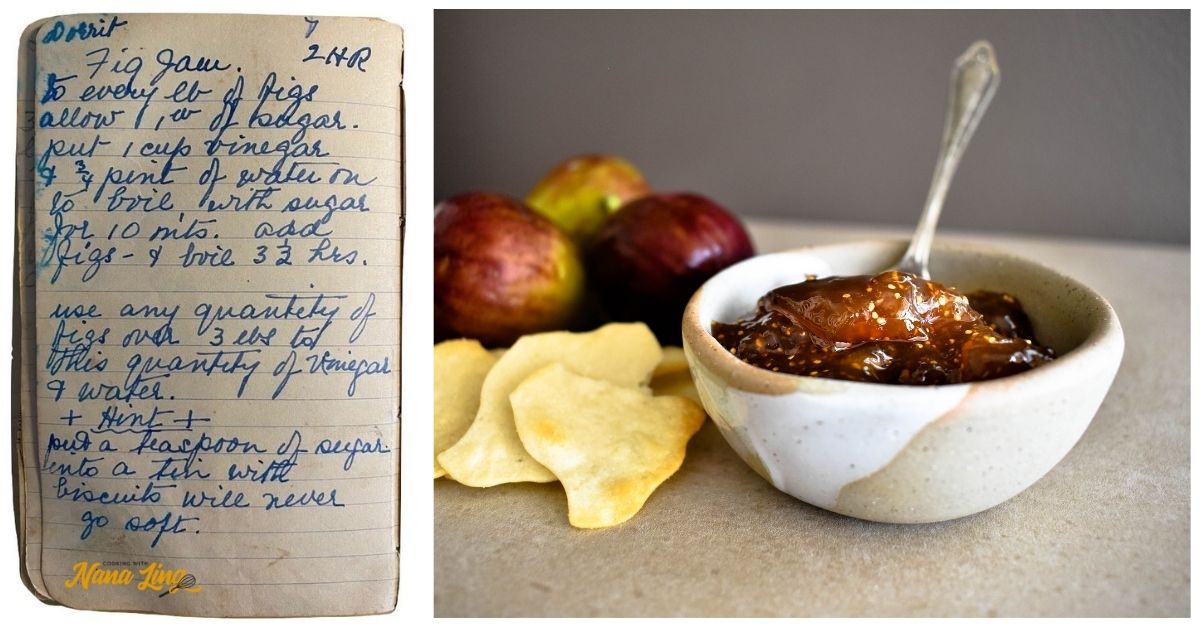 Dorrit
Fig Jam. 2 HR
to every lb of figs
allow 1 lb of sugar.
put 1 cup vinegar
& 3/4 pint of water on
to boil, with sugar
for 10 mts. add
figs - & boil 3 1/2 hrs.
use any quantety of
figs over 3 lbs to
this quantity of Vinegar
& water.
+ Hint +
put a teaspoon of sugar
into a tin with
biscuits will never
go soft.
COOKING WITH
Nana Ling